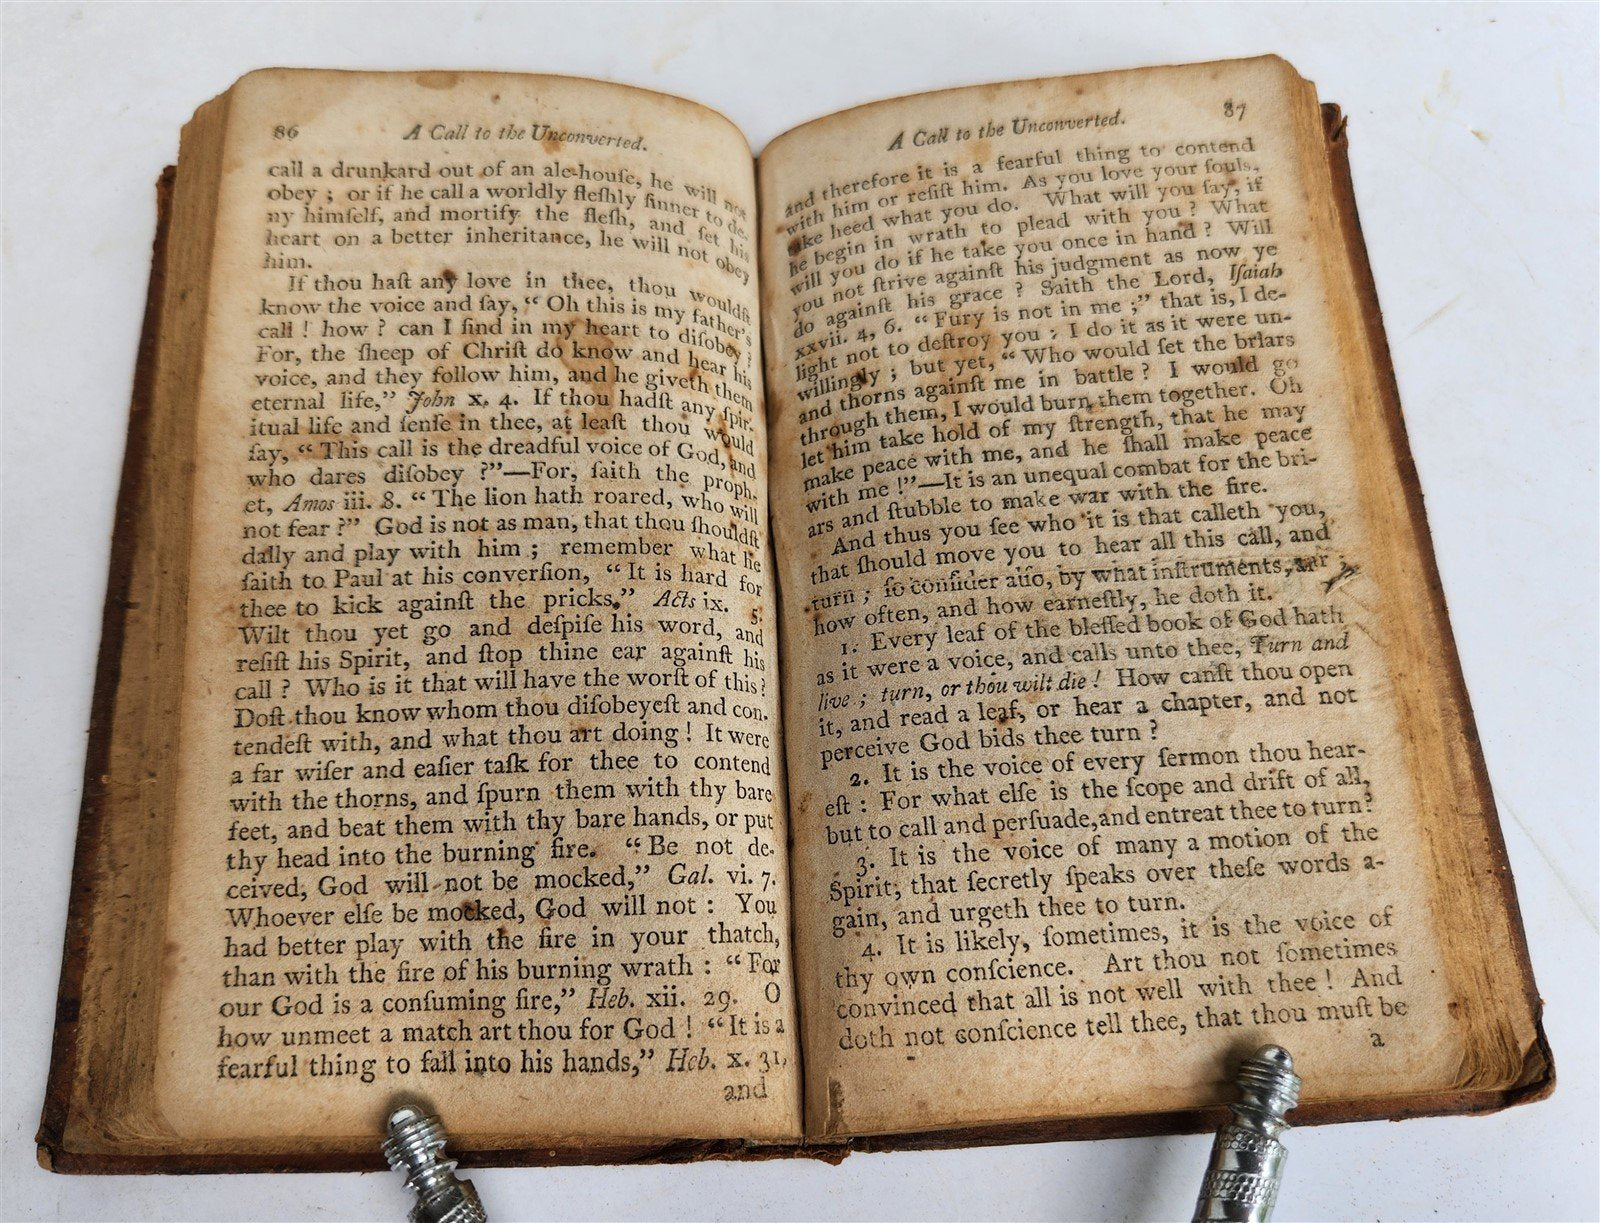 86
A Call to the Unconverted.
call a drunkard out of an ale-houſe, he will not
obey ; or if he call a worldly fleſhly ſinner to de-
ny himſelf, and mortify the fleſh, and ſet his
heart on a better inheritance, he will not obey
him.
If thou haſt any love in thee, thou wouldſt
know the voice and ſay, “ Oh this is my father's
call ! how ? can I find in my heart to diſobey ?
For, the ſheep of Chriſt do know and hear his
voice, and they follow him, and he giveth them
eternal life,” John x. 4. If thou hadſt any ſpir-
itual life and ſenſe in thee, at leaſt thou would
ſay, “ This call is the dreadful voice of God, and
who dares diſobey ?”—For, ſaith the proph-
et, Amos iii. 8. “ The lion hath roared, who will
not fear ?” God is not as man, that thou ſhouldſt
dally and play with him ; remember what he
ſaith to Paul at his converſion, “ It is hard for
thee to kick againſt the pricks.” Acts ix. 5.
Wilt thou yet go and deſpiſe his word, and
reſiſt his Spirit, and ſtop thine ear againſt his
call ? Who is it that will have the worſt of this?
Doſt thou know whom thou diſobeyeſt and con-
tendeſt with, and what thou art doing ! It were
a far wiſer and eaſier taſk for thee to contend
with the thorns, and ſpurn them with thy bare
feet, and beat them with thy bare hands, or put
thy head into the burning fire. “ Be not de-
ceived, God will not be mocked,” Gal. vi. 7.
Whoever elſe be mocked, God will not : You
had better play with the fire in your thatch,
than with the fire of his burning wrath : “ For
our God is a conſuming fire,” Heb. xii. 29. O
how unmeet a match art thou for God ! “ It is a
fearful thing to fall into his hands,” Heb. x. 31,
and
A Call to the Unconverted.
87
and therefore it is a fearful thing to contend
with him or reſiſt him. As you love your ſouls,
take heed what you do. What will you ſay, if
he begin in wrath to plead with you ? What
will you do if he take you once in hand ? Will
you not ſtrive againſt his judgment as now ye
do againſt his grace ? Saith the Lord, Iſaiah
xxvii. 4, 6. “ Fury is not in me ;” that is, I de-
light not to deſtroy you : I do it as it were un-
willingly ; but yet, “ Who would ſet the briars
and thorns againſt me in battle ? I would go
through them, I would burn them together. Oh
let him take hold of my ſtrength, that he may
make peace with me, and he ſhall make peace
with me !”—It is an unequal combat for the bri-
ars and ſtubble to make war with the fire.
And thus you ſee who it is that calleth you,
that ſhould move you to hear all this call, and
turn ; ſo conſider alſo, by what inſtruments, and
how often, and how earneſtly, he doth it.
1. Every leaf of the bleſſed book of God hath
as it were a voice, and calls unto thee, Turn and
live ; turn, or thou wilt die ! How canſt thou open
it, and read a leaf, or hear a chapter, and not
perceive God bids thee turn ?
2. It is the voice of every ſermon thou hear-
eſt : For what elſe is the ſcope and drift of all,
but to call and perſuade, and entreat thee to turn?
3. It is the voice of many a motion of the
Spirit, that ſecretly ſpeaks over theſe words a-
gain, and urgeth thee to turn.
4. It is likely, ſometimes, it is the voice of
thy own conſcience. Art thou not ſometimes
convinced that all is not well with thee ! And
doth not conſcience tell thee, that thou muſt be
a